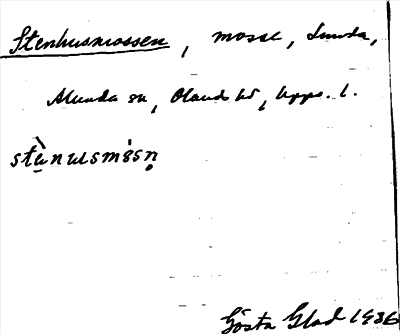 Stenhusmossen, mosse, Sunda,
Alunda sn, Oland hd, Upps. l.
stὲ̣nusmòsn̥
Gösta Glad 1936